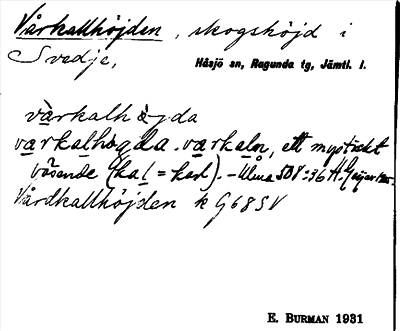 Vårkallhöjden, skogshöjd i
Svedje,
Håsjö sn, Ragunda tg, Jämtl. l.
vàrkalhö̀gda
varkalhögda. varkaln, ett mystiskt
väsende (kal = karl). - Ulma 587:36 H. Geijer
Vårdkallhöjden k G68SV
E. BURMAN 1931